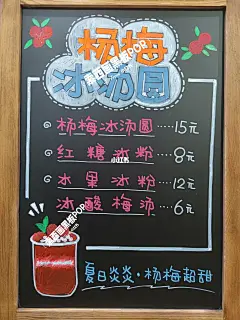 杨梅
冰汤圆
杨梅冰汤圆····15元
红糖冰粉····8元
水果冰粉····12元
冰酸梅汤····6元
夏日炎炎·杨梅超甜